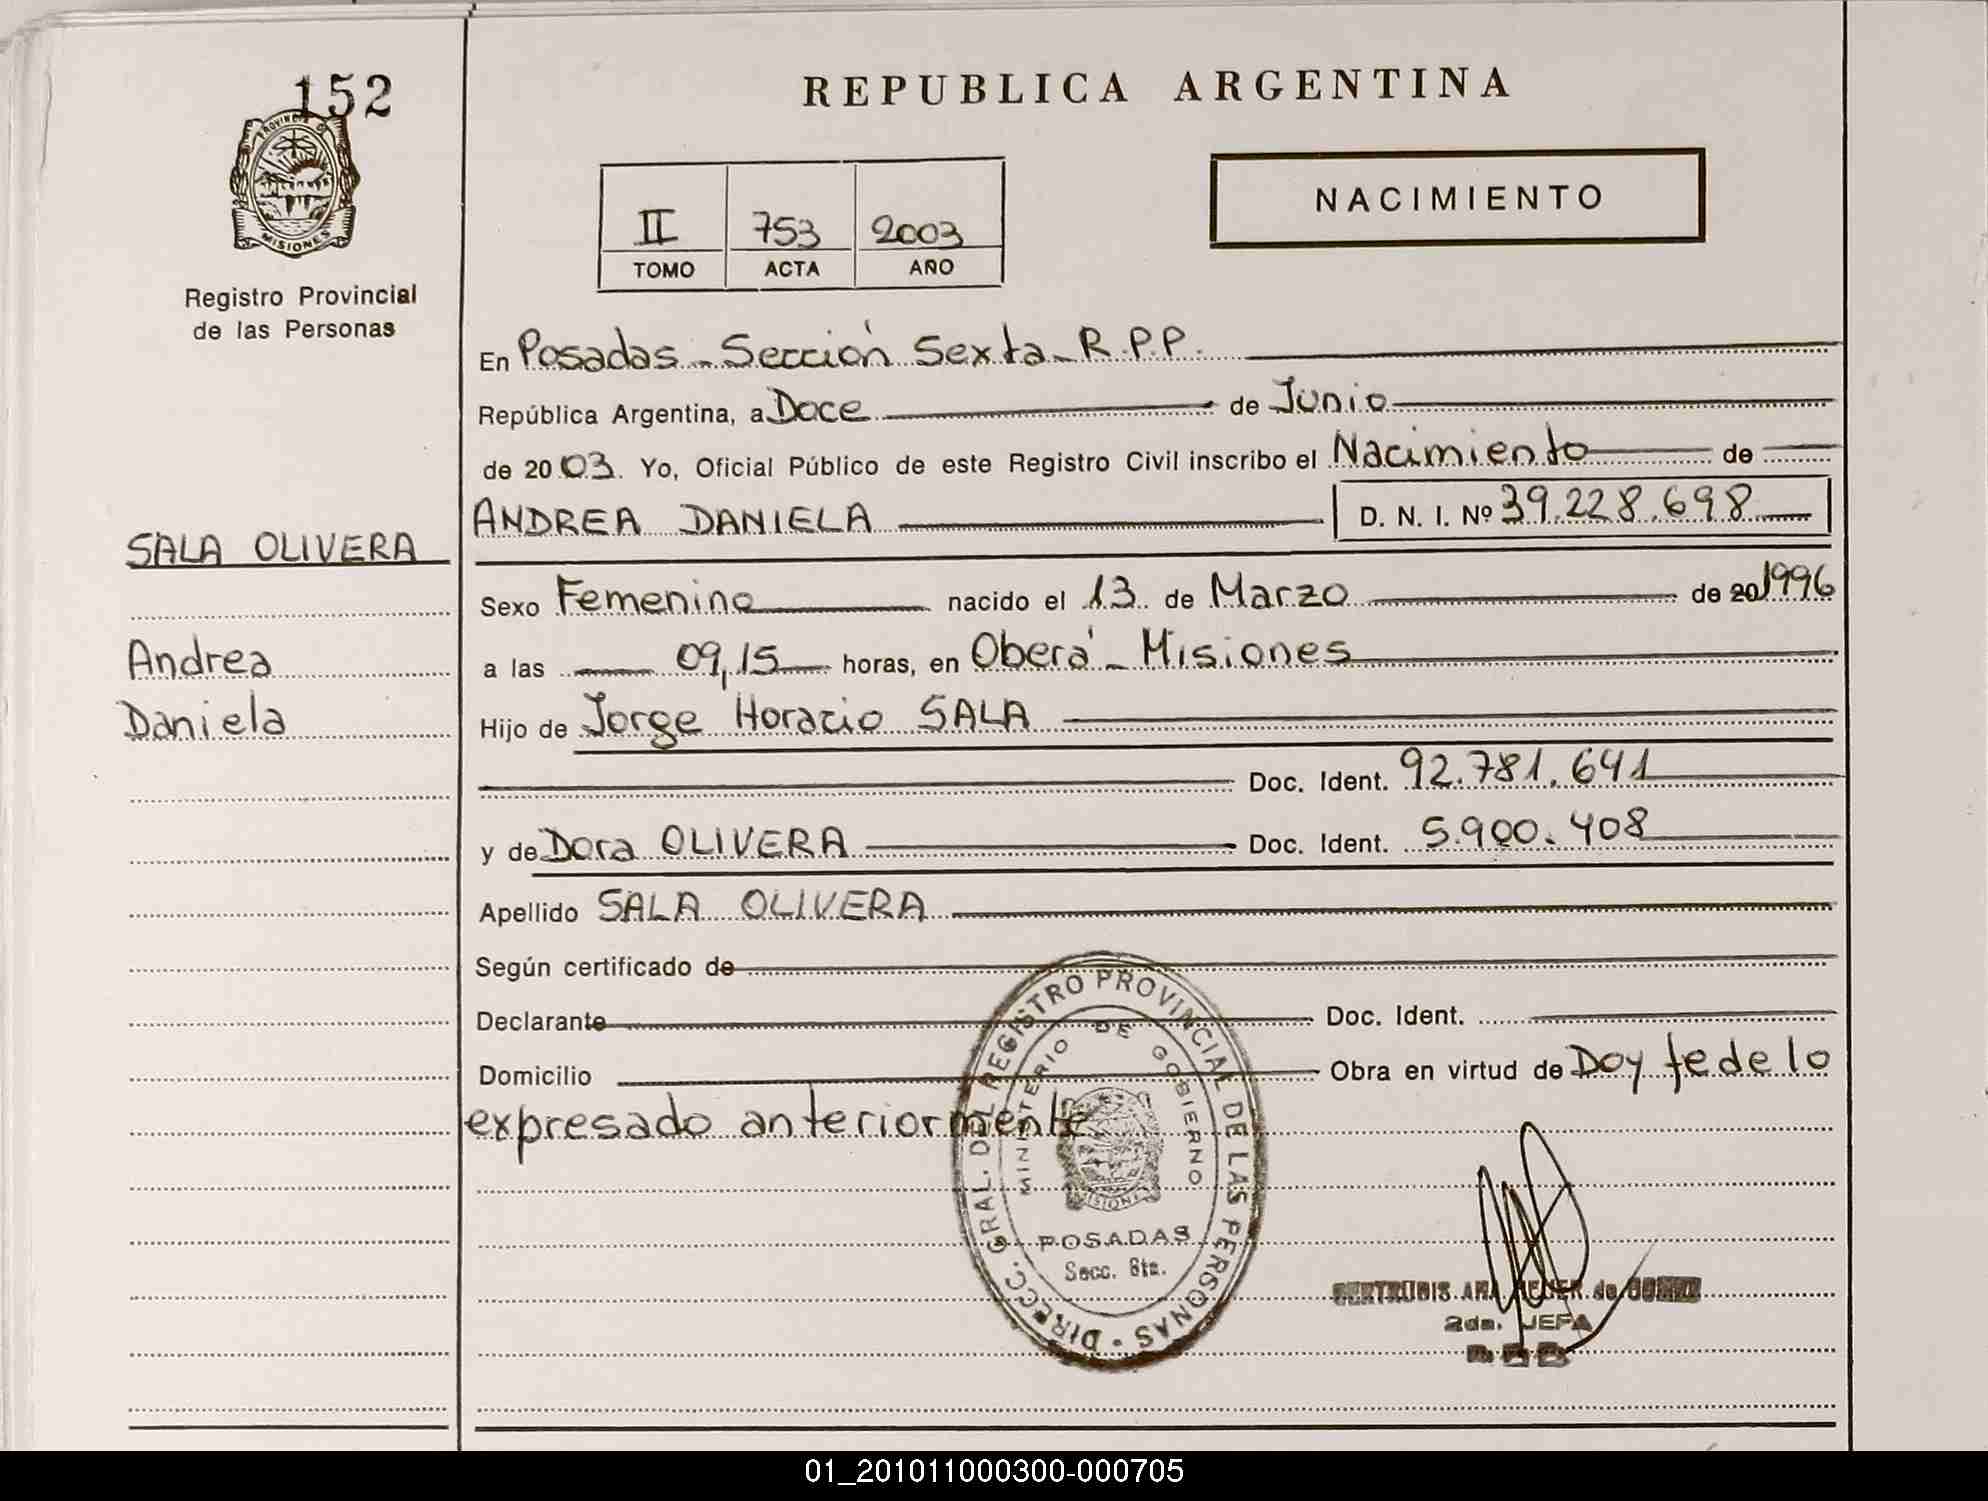 152
PROVINCIA DE
MISIONES
Registro Provincial
de las Personas
REPUBLICA ARGENTINA
II 753 2003
TOMO ACTA AÑO
NACIMIENTO
En Posadas - Sección Sexta - R.P.P.
República Argentina, a Doce de Junio
de 2003. Yo, Oficial Público de este Registro Civil inscribo el Nacimiento de
ANDREA DANIELA D. N. I. Nº 39.228.698
SALA OLIVERA
Sexo Femenino nacido el 13 de Marzo de 20 1996
Andrea
a las 09,15 horas, en Oberá - Misiones
Daniela
Hijo de Jorge Horacio SALA
Doc. Ident. 92.781.641
y de Dora OLIVERA Doc. Ident. 5.900.408
Apellido SALA OLIVERA
Según certificado de
Declarante Doc. Ident.
Domicilio Obra en virtud de Doy fe de lo
expresado anteriormente
DIRECC. GRAL. DEL REGISTRO PROVINCIAL DE LAS PERSONAS
MINISTERIO DE GOBIERNO
MISIONES
POSADAS
Secc. 6ta.
GERTRUDIS ANA de
2da. JEFA
01_201011000300-000705